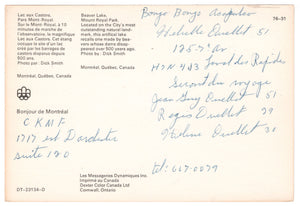 Lac aux Castors,
Parc Mont Royal.
Sur le Mont-Royal, à 10
minutes de marche de
l'observatoire, le magnifique
Lac aux Castors. Cet étang
occupe le site d'un lac
créé par les barrages de
castors disparus depuis
800 ans.
Photo par: Dick Smith
Montréal, Québec, Canada
Beaver Lake,
Mount Royal Park.
Located on the City's most
outstanding natural land-
mark, the artificial lake
recalls ancient beaver
dams which disappeared
over 800 years ago.
Photo: Dick Smith
Montréal, Québec, Canada
76-91
Bongo Bongo Acapulco
Isabelle Ouellet 51
125-7e Av
H7N 4J3 Laval des Rapides
Serait du voyage
Jean Guy Ouellet 51
Roger Ouellet 29
Ouellet 30
tel: 667-0079
Bonjour de Montréal
CKMF
1717 est Dorchester
suite 120
Les Messageries Dynamiques Inc.
Imprimé au Canada
Dexter Color Canada Limited
Cornwall, Ontario
DT-23134-D